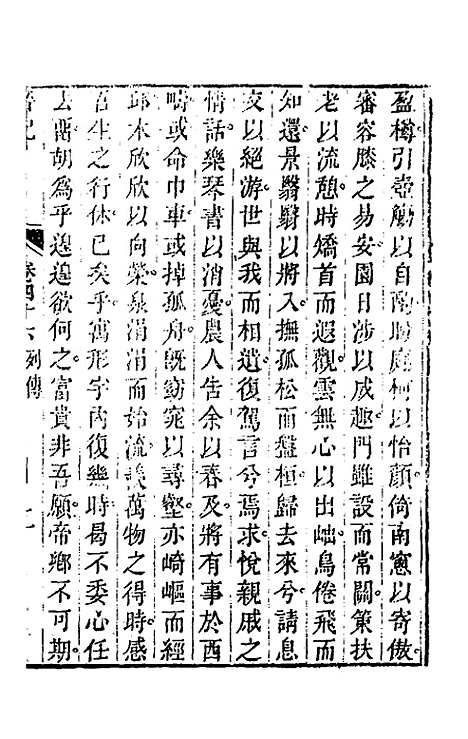 盈樽引壺觴以自酌眄庭柯以怡顏倚南窻以寄傲
審容膝之易安園日涉以成趣門雖設而常關策扶
老以流憩時矯首而遐觀雲無心以出岫鳥倦飛而
知還景翳翳以將入撫孤松而盤桓歸去來兮請息
交以絕游世與我而相遺復駕言兮焉求悅親戚之
情話樂琴書以消憂農人告余以春及將有事於西
疇或命巾車或掉孤舟既窈窕以尋壑亦崎嶇而經
邱木欣欣以向榮泉涓涓而始流羨萬物之得時感
吾生之行休已矣乎寓形宇內復幾時曷不委心任
去留胡為乎遑遑欲何之富貴非吾願帝鄉不可期
晉記 卷四十六 列傳